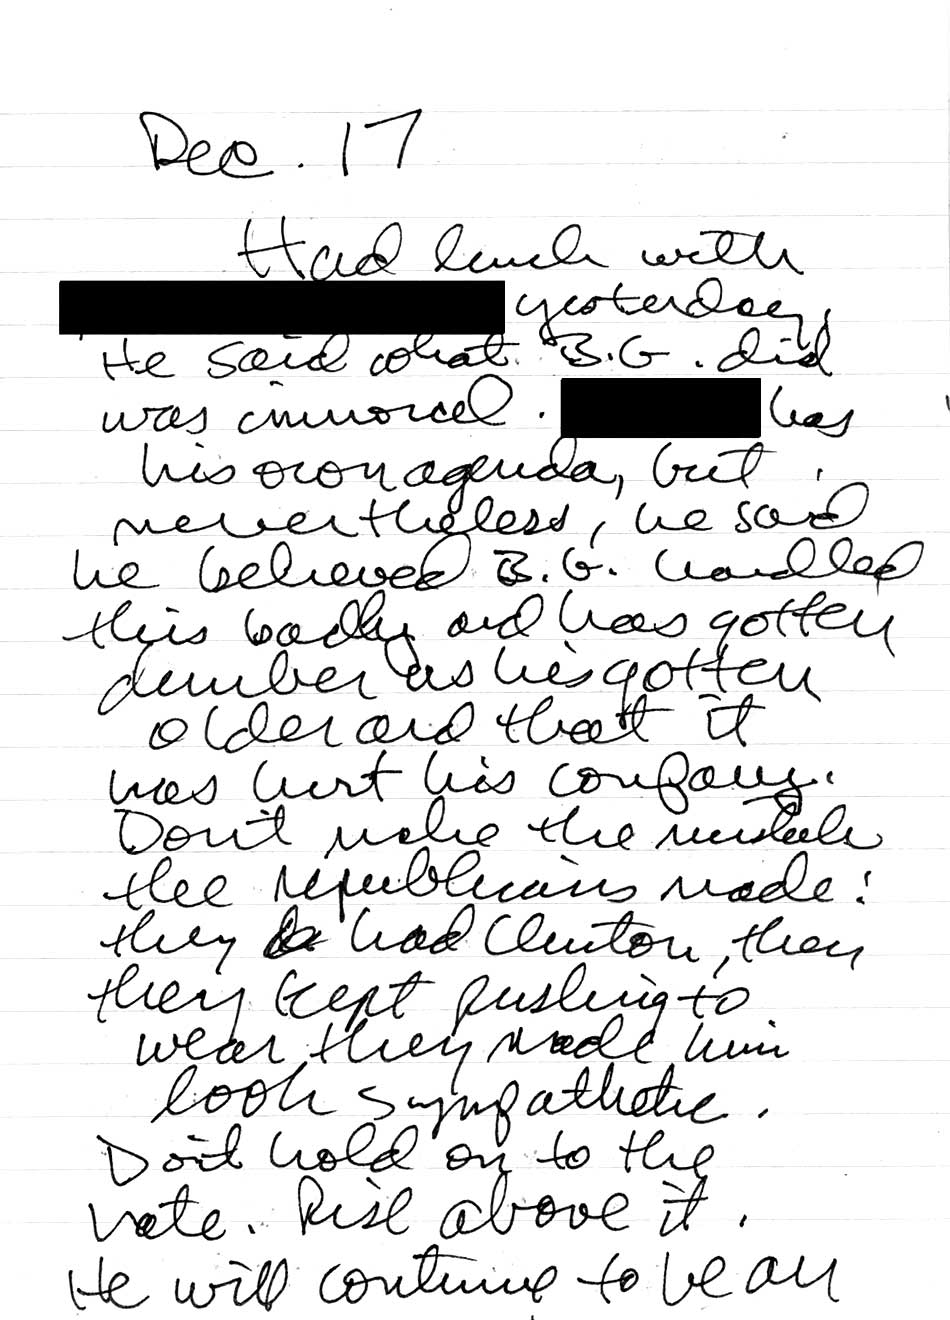 Dec. 17
Had lunch with
yesterday.
He said what B.G. did
was immoral. has
his own agenda, but
nevertheless, he said
he believed B.G. handled
this badly and has gotten
dumber as he's gotten
older and that it
was hurt his company.
Don't make the mistake
the republicans made:
they had Clinton, they
they kept pushing to
wear they made him
look sympathetic.
Don't hold on to the
hate. Rise above it.
He will continue to be an